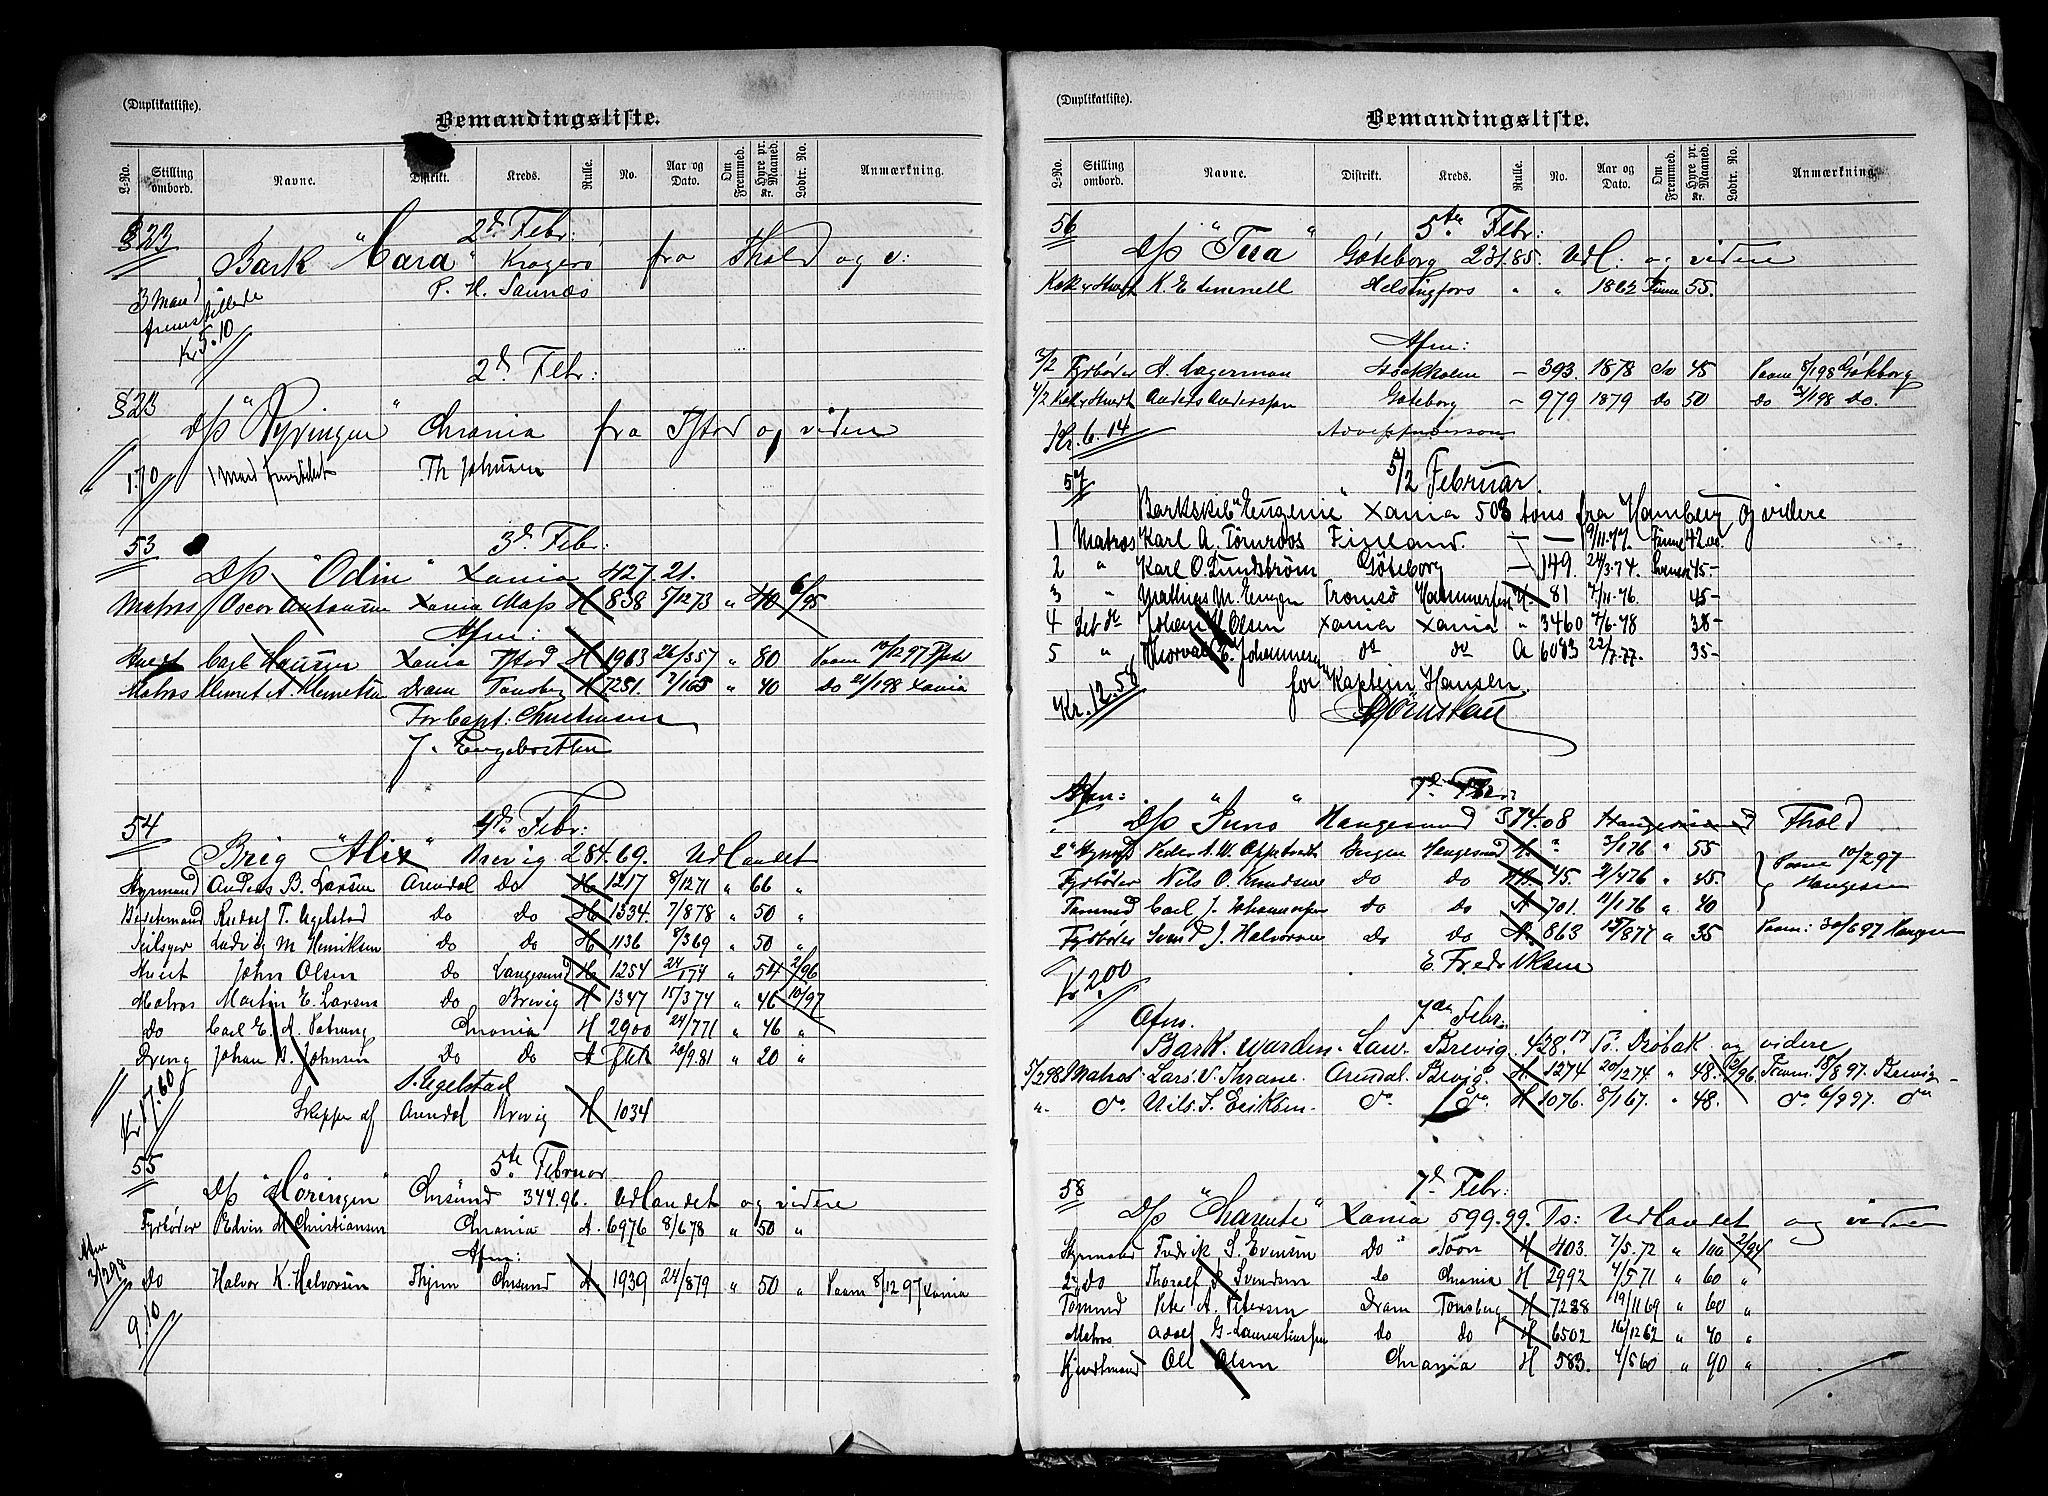 (Duplikatliste).
Bemandingsliste.
L-No. Stilling ombord. Navne. Distrikt. Kreds. Rulle. No. Aar og Dato. Om Fremmed. Hyre pr. Maaned. Kr. Lodtr. No. Anmærkning.
§23 2d Febr:
Bark "Cara" Kragerö fra Fhold og v:
3 Mand P. H. Sannæs
fremstillede
Kr 5.10
2d Febr:
§23
D/S "Pyvingen" Chrania fra Fstad og videre
1.70 1 Mand fremstillet Th Johnsen
53 3d Febr:
D/S "Odin" Xania 427.21.
Matros Oscar Antonsen Xania Moss H 838 5/12 73 " 40 6/95
Afm:
Stuert Carl Hansen Xania Fstad H 1963 26/3 57 " 80 Paam 10/12 97 Fstd
Matros Klemet A. Klemetsen Dram Tønsberg H 7251 2/1 65 " 40 Do 21/1 98 Xania
For Capt: Christiansen
J. Engebretsen
54 4de Febr:
Brig "Alix" Brevig 284.69. Udlandet
Styrmand Anders B. Larsen Arendal Do H 1217 8/12 71 " 66 "
Bestmand Rudolf T. Ugelstad do do H 1334. 7/8 78 " 50 "
Seilsyer Ludvig M Henriksen do do H 1136 8/3 69 " 50 "
Stuert John Olsen do Langesund H 1254 24/1 74 " 54 2/96
Matros Martin E. Larsen do Brevig H 1347 15/3 74 " 46 10/97
Do Carl E. A. Chrania H 2900 24/7 71 " 46 "
Dreng Johan A. Johnsen Do Do A 20/9 81 " 20 "
Kr 17.60 S. Ugelstad
Skipper af Arendal Brevig H 1034
55 5te Februar
D/S "Höringen" Chrsund 344.96. Udlandet og videre
Fyrböder Edvin H Christiansen Chrania A. 6976 8/6 78 " 50 "
Afm 3/2 98 Afm:
Do Halvor K. Halvorsen Thjem Chrsund A 1939 24/8 79 " 50 " Paam 8/12 97 Xania
9.10
(Duplikatliste).
Bemandingsliste.
L-No. Stilling ombord. Navne. Distrikt. Kreds. Rulle. No. Aar og Dato. Om Fremmed. Hyre pr. Maaned. Kr. Lodtr. No. Anmærkning.
56 5te Febr:
D/S "Tua" Göteborg 231.85. Udl: og videre
Kok & Stuert K. E. Helsingfors " " 1862 Finne 55.
Afm:
3/2 Fyrböder A. Lagerman Stockholm - 393. 1878 Sv 45 Paam 8/1 98 Göteborg
4/2 Kok & Stuert Anders Andersson Göteborg - 979 1879 do 50 do 12/1 98 do.
Kr. 6.14
57 5/2 Februar.
Barkskib "Eugenie" Xania 508 tons fra Hamborg og videre
1 Matros Karl A. Törnroos Finland. - - 9/11.77. Finne 42.00.
2 " Karl O. Lundström Göteborg - 149. 24/3.74. Svensk 45-
3 " Mathias M. Tromsö Hammerfest H. 81 7/11.76. 45-
4 Let M. Johan H. Olsen Xania Xania " 3460 2/6.78 38-
5 " Thorvald E. Johannesen do do A 6083 22/7.77. 35-
Kr. 12.58 for Kaptein Hansen.
Afm: 7d. Febr:
D/S "Juno" Haugesund 374.08 Haugesund Fhold
2 Styrmd Peder A. W. Bergen Haugesund H. " 3/1 76 " 55
Fyrböder Nils O. Knudsen Do Do 45. 2/4 76 " 45. Paam 10/2 97 Haugesun
Tömmd Carl J. Johannessen do do A 701. 11/1 76 " 40
Fyrböder Svend J. Halvorsen Do Do A. 863 15/8 77 " 35 Paam: 30/6 97 Haugesun
Kr 2.00 E. Fredriksen
Afm. 7de Febr:
Bark. Warden. Law. Brevig. 428.17 T. Dröbak og videre
5/2 98 Matros Lars. N. Thrane. Arendal. Brevig. H 1274 20/2 74 " 48. 12/96 Paam. 18/8 97. Brevig
" do Nils. S. Eriksen. do do. H 1076. 8/1 67. " 48. do 6/9 97. do
58 7d Febr:
D/S "Charente" Xania 599.99. Ts: Udlandet og videre
Styrmand Fredrik S. Evensen Do H 403. 7/5. 72 " 100 2/94
2 Do Tharalf Svendsen do Chrania H 2992 4/5 71 " 60 "
Tömmd Peter A. Petersen Dram Tønsberg H 7288 19/11 69 " 60 "
Matros Adolf G. Laurentiussen do do H 6502 16/12 62 " 40 "
Kjendtmand Ole Olsen Chrania H 583. 4/5 60 " 90 "